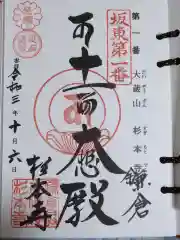 第一番 大蔵山 杉本
坂東第一番
鎌倉
十一面大悲殿
令和三年十月六日
杉本寺